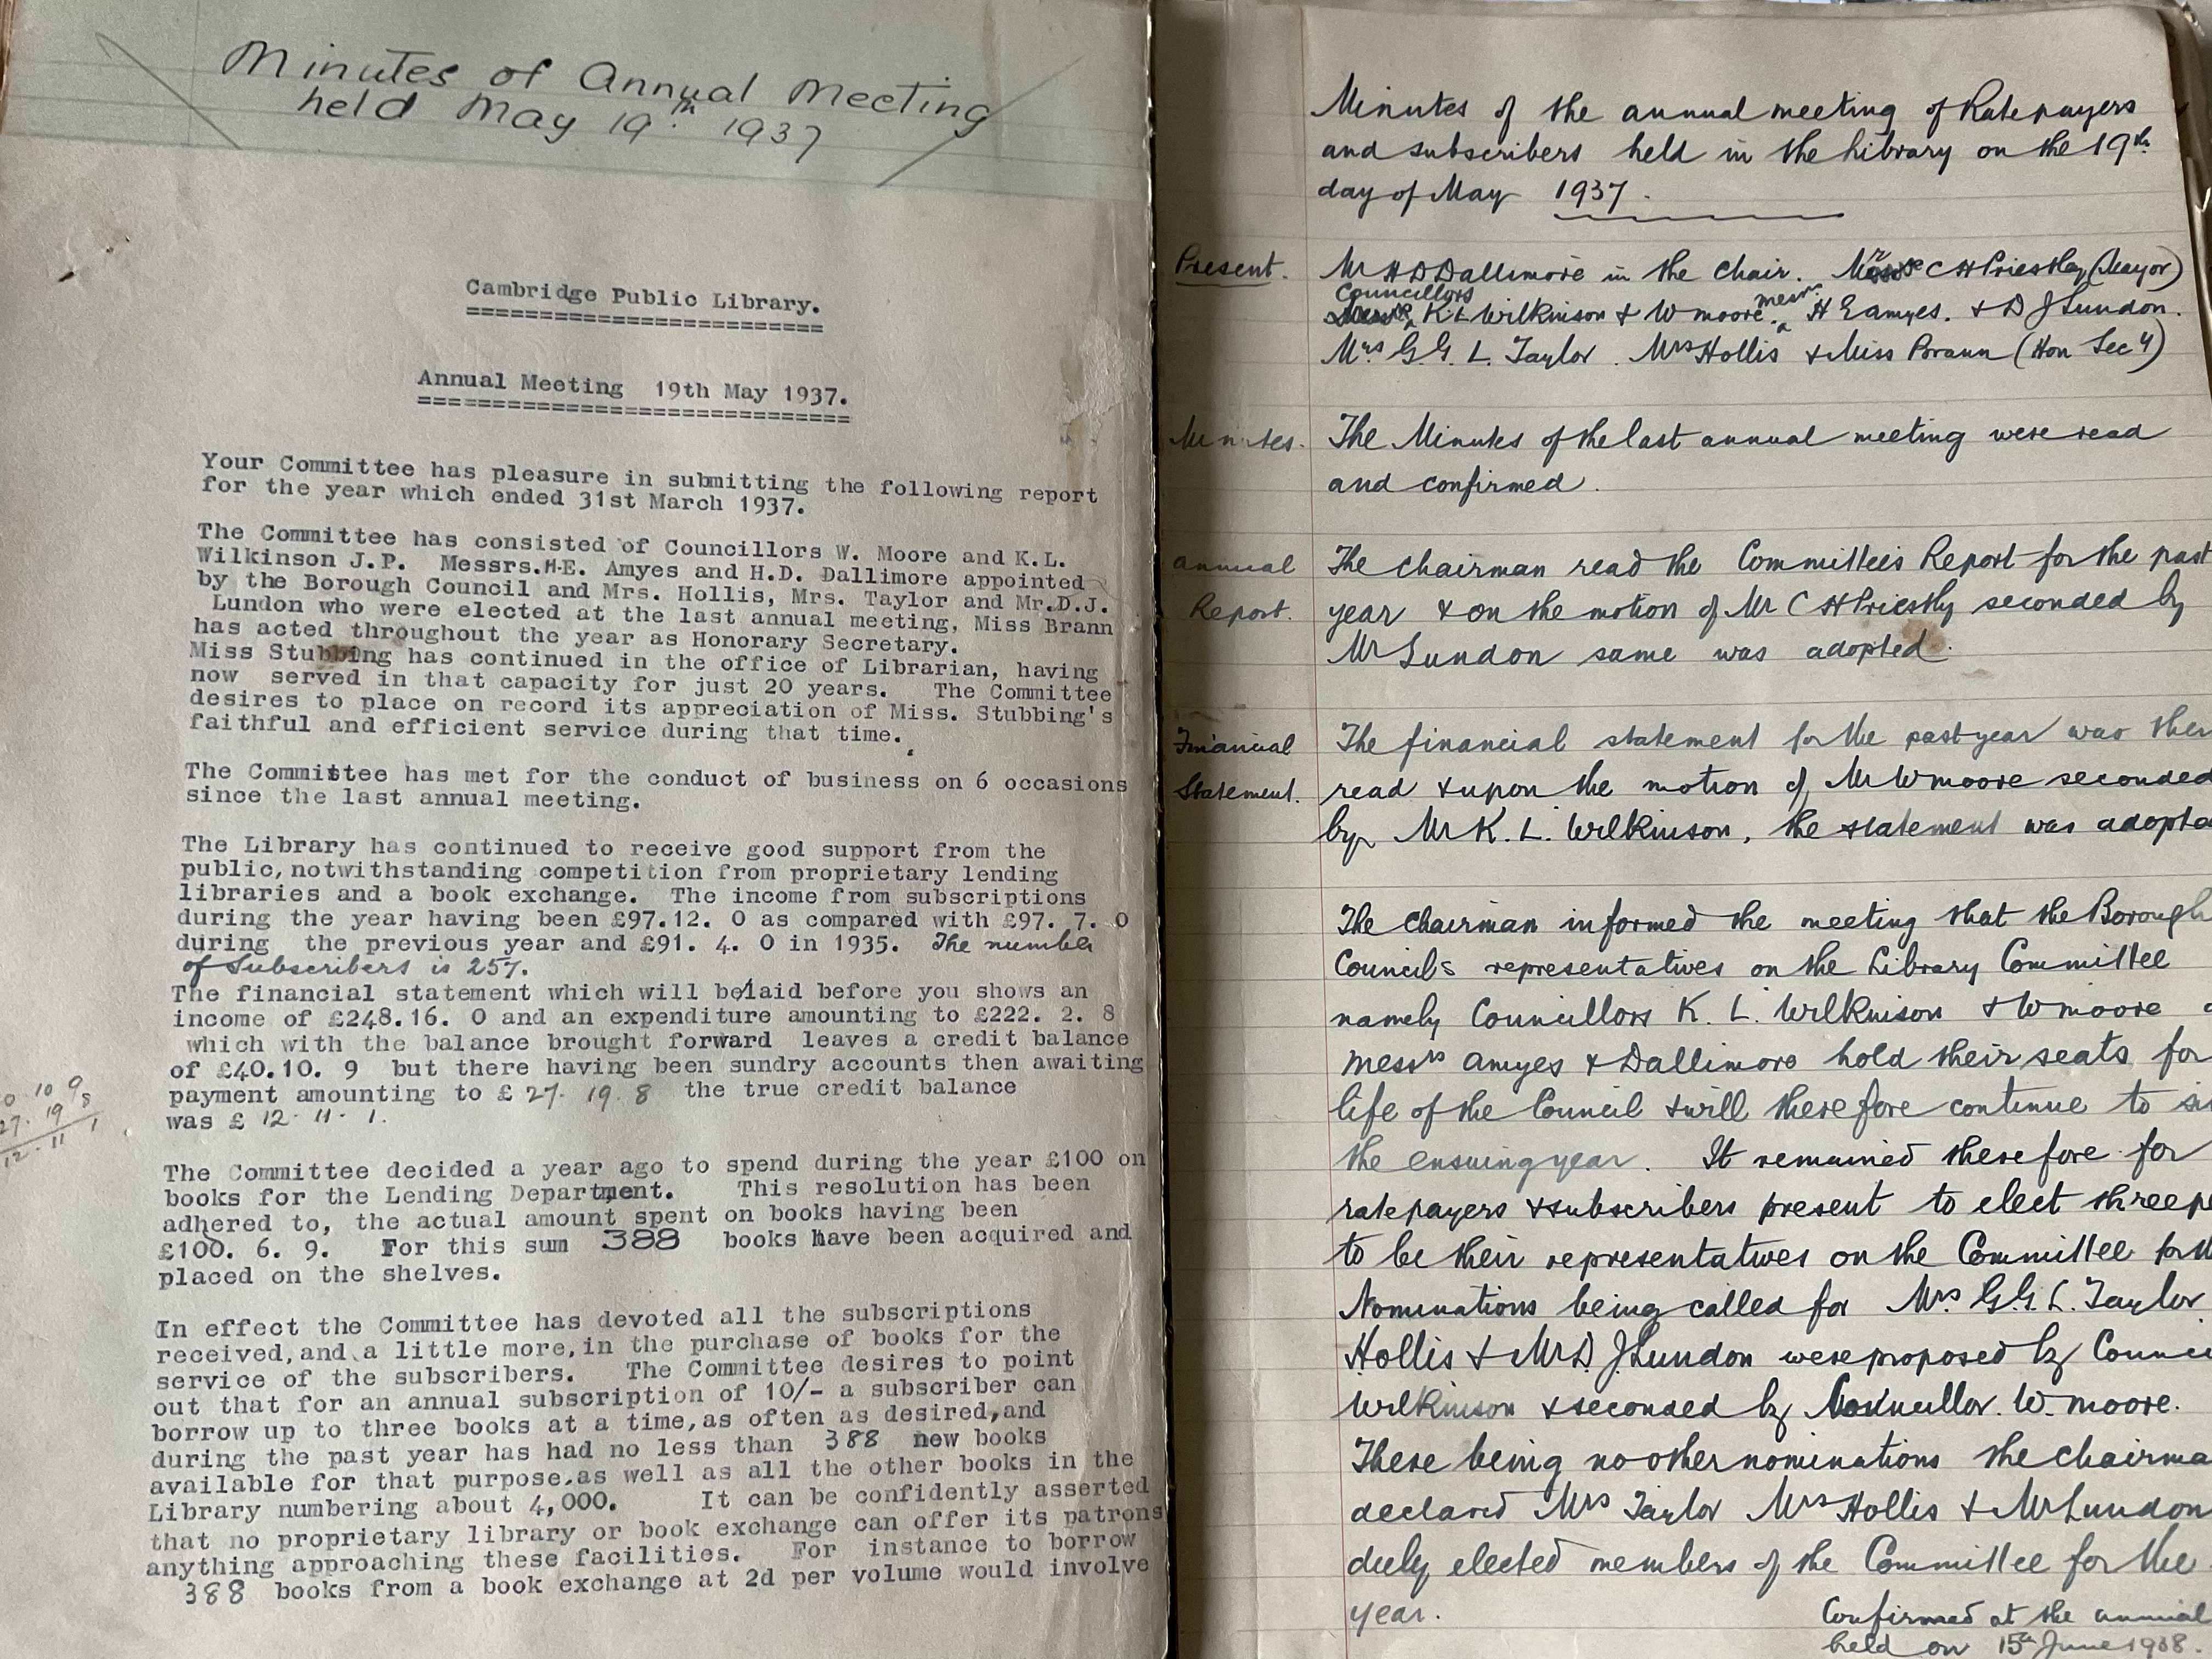 Minutes of Annual Meeting
held May 19th. 1937
Cambridge Public Library.
Annual Meeting 19th May 1937.
Your Committee has pleasure in submitting the following report
for the year which ended 31st March 1937.
The Committee has consisted of Councillors W. Moore and K.L.
Wilkinson J.P. Messrs.H.E. Amyes and H.D. Dallimore appointed
by the Borough Council and Mrs. Hollis, Mrs. Taylor and Mr.D.J.
Lundon who were elected at the last annual meeting, Miss Brann
has acted throughout the year as Honorary Secretary.
Miss Stubbing has continued in the office of Librarian, having
now served in that capacity for just 20 years. The Committee
desires to place on record its appreciation of Miss. Stubbing's
faithful and efficient service during that time.
The Committee has met for the conduct of business on 6 occasions
since the last annual meeting.
The Library has continued to receive good support from the
public, notwithstanding competition from proprietary lending
libraries and a book exchange. The income from subscriptions
during the year having been £97.12. 0 as compared with £97. 7. 0
during the previous year and £91. 4. 0 in 1935. The number
of Subscribers is 257.
The financial statement which will be/laid before you shows an
income of £248.16. 0 and an expenditure amounting to £222. 2. 8
which with the balance brought forward leaves a credit balance
of £40.10. 9 but there having been sundry accounts then awaiting
payment amounting to £ 27. 19. 8 the true credit balance
was £ 12. 11. 1.
0 10 9
27. 19 8
12. 11 1
The Committee decided a year ago to spend during the year £100 on
books for the Lending Department. This resolution has been
adhered to, the actual amount spent on books having been
£100. 6. 9. For this sum 388 books have been acquired and
placed on the shelves.
In effect the Committee has devoted all the subscriptions
received, and a little more, in the purchase of books for the
service of the subscribers. The Committee desires to point
out that for an annual subscription of 10/- a subscriber can
borrow up to three books at a time, as often as desired, and
during the past year has had no less than 388 new books
available for that purpose, as well as all the other books in the
Library numbering about 4,000. It can be confidently asserted
that no proprietary library or book exchange can offer its patrons
anything approaching these facilities. For instance to borrow
388 books from a book exchange at 2d per volume would involve
Minutes of the annual meeting of Ratepayers
and subscribers held in the Library on the 19th
day of May 1937.
Present. Mr H D Dallimore in the chair. Mr C H Priestley (Mayor)
Councillors K. L Wilkinson & W moore. messrs H E amyes. & D J Lundon.
Mrs G. G. L. Taylor. Mrs Hollis & Miss Brann (Hon Secy)
Minutes. The Minutes of the last annual meeting were read
and confirmed.
annual The chairman read the Committees Report for the past
Report. year & on the motion of Mr C H Priestly seconded by
Mr Lundon same was adopted.
Financial The financial statement for the past year was then
Statement. read & upon the motion of Mr W moore seconded
by Mr K. L. Wilkinson, the statement was adopte
The chairman informed the meeting that the Borough
Councils representatives on the Library Committee
namely Councillors K. L. Wilkinson & W moore
messrs amyes & Dallimore hold their seats for
life of the Council & will therefore continue to
the ensuing year. It remained therefore for
ratepayers & subscribers present to elect three pe
to be their representatives on the Committee for th
Nominations being called for Mrs G. G. L. Taylor
Hollis & Mr D. J Lundon were proposed by Counci
Wilkinson & seconded by Councillor. W. moore.
There being no other nominations the chairma
declared Mrs Taylor Mrs Hollis & Mr Lundon
duly elected members of the Committee for the
year.
Confirmed at the annual
held on 15th June 1938.